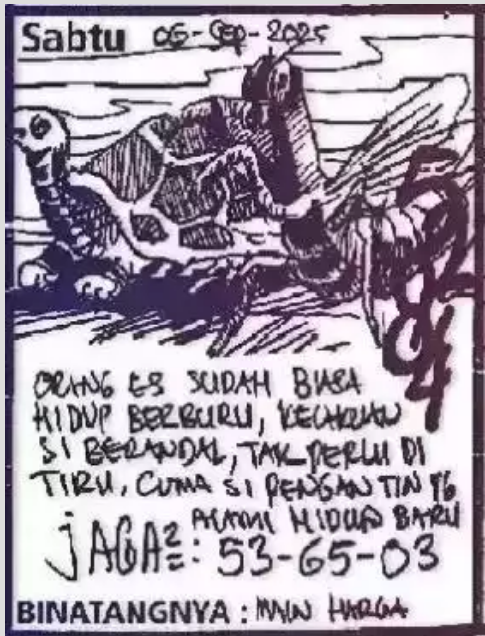 Sabtu 06-Sep-2025
ORANG ES SUDAH BIASA
HIDUP BERBURU,
SI BERANDAL, TAK PERLU DI
TIRU, CUMA SI PENGANTIN YG
HIDUP BARU
JAGA²: 53-65-03
BINATANGNYA : MAIN HARGA